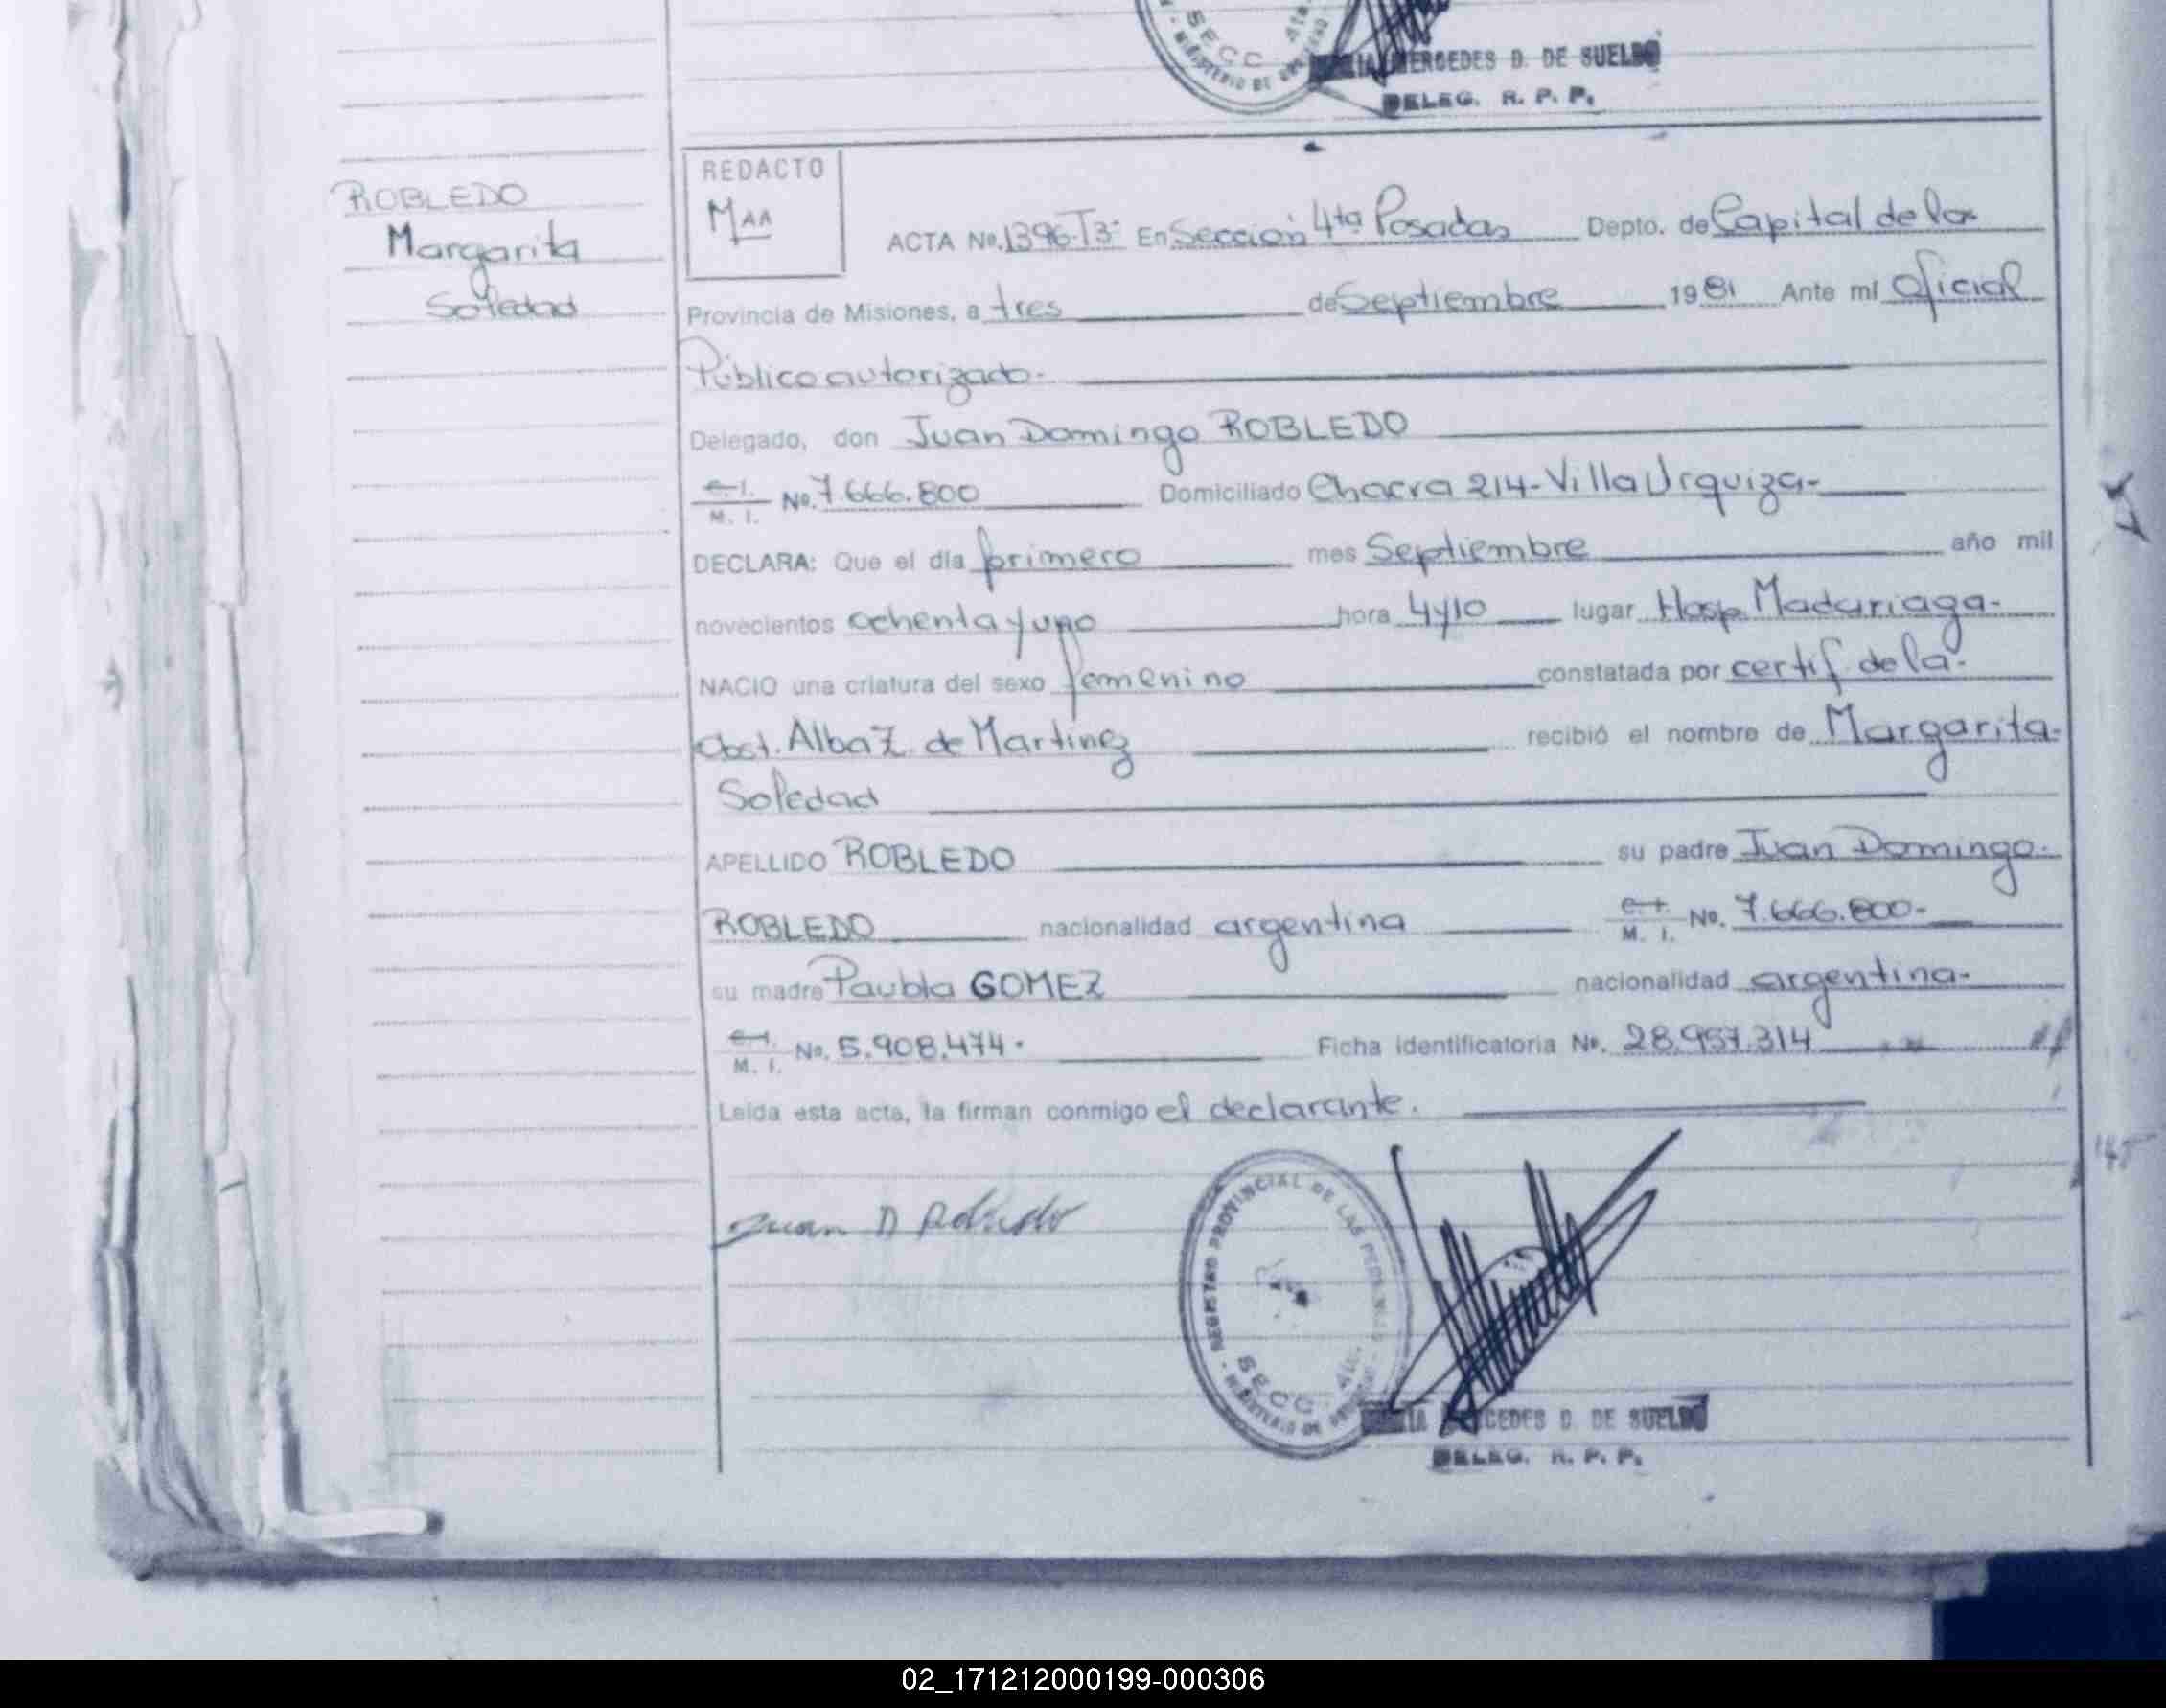 SECC 4ta
MERCEDES D. DE SUELDO
DELEG. R. P. P.
ROBLEDO
Margarita
Soledad
REDACTO
MAA
ACTA No. 1396-T3- En Sección 4ta Posadas Depto. de Capital de la
Provincia de Misiones, a tres de Septiembre 1981 Ante mí Oficial
Público autorizado.
Delegado, don Juan Domingo ROBLEDO
C. I. M. I. No. 7.666.800 Domiciliado Chacra 214-Villa Urquiza-
DECLARA: Que el día primero mes Septiembre año mil
novecientos ochenta y uno hora 4y10 lugar Hosp. Madariaga-
NACIO una criatura del sexo femenino constatada por certif. de la-
Obst. Alba Z. de Martinez recibió el nombre de Margarita-
Soledad
APELLIDO ROBLEDO su padre Juan Domingo-
ROBLEDO nacionalidad argentina C. I. M. I. No. 7.666.800-
su madre Paubla GOMEZ nacionalidad argentina-
C. I. M. I. No. 5.908.474. Ficha identificatoria No. 28.957.314
Leída esta acta, la firman conmigo el declarante.
Juan D Robledo
REGISTRO PROVINCIAL DE LAS PERSONAS
SECC. 4ta.
MERCEDES D. DE SUELDO
DELEG. R. P. P.
02_171212000199-000306